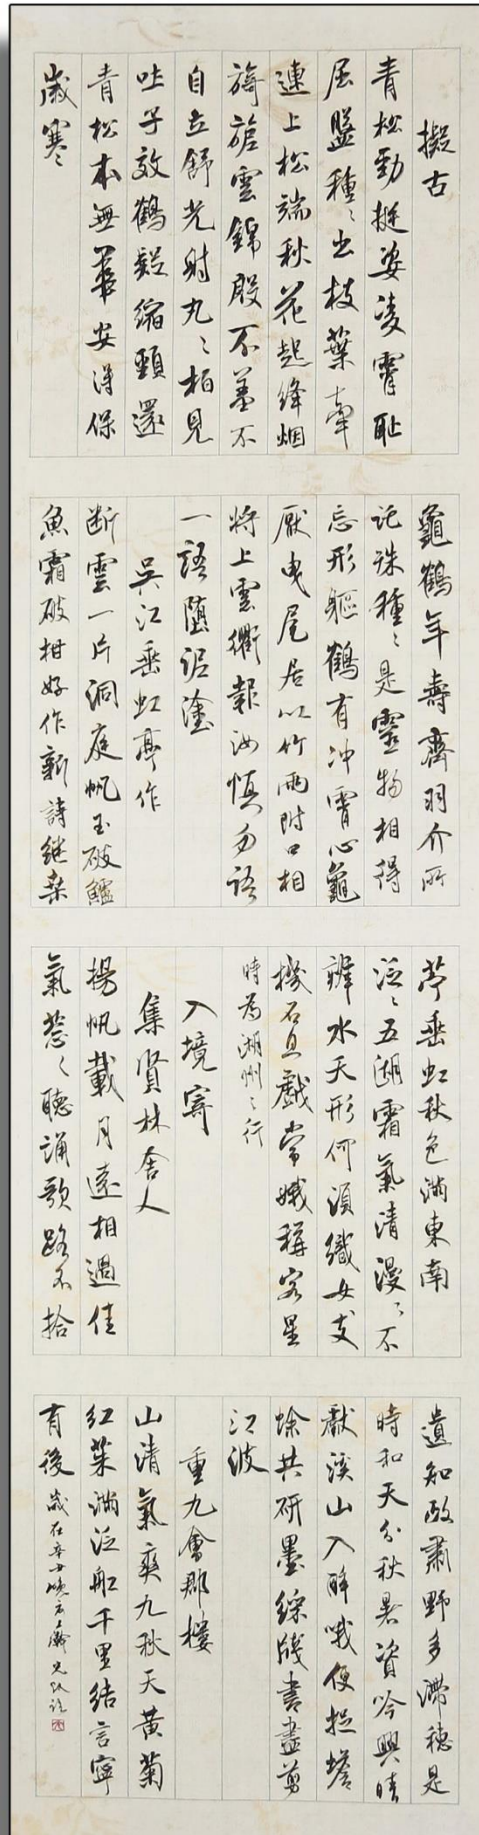 擬古
青松勁挺姿凌霄恥
屈盤種〻出枝葉牽
連上松端秋花起絳烟
旖旎雲錦殷不羞不
自立舒光射丸〻柏見
吐子效鶴疑縮頸還
青松本無華安得保
歲寒
龜鶴年壽齊羽介所
託殊種〻是靈物相得
忘形軀鶴有冲霄心龜
厭曳尾居以竹兩附口相
將上雲衢報汝慎勿語
一語墮泥塗
吳江垂虹亭作
断雲一片洞庭帆玉破鱸
魚霜破柑好作新詩繼桑
苧垂虹秋色滿東南
泛〻五湖霜氣清漫〻不
辨水天形何須織女支
機石且戲常娥稱客星
時為湖州之行
入境寄
集賢林舍人
揚帆載月遠相過佳
氣葱〻聽誦歌路不拾
遺知政肅野多滯穗是
時和天分秋暑資吟興晴
獻溪山入醉哦便捉蟾
蜍共研墨綵牋書盡剪
江波
重九會郡樓
山清氣爽九秋天黃菊
紅茱滿泛船千里結言寧
有後 歲在辛丑